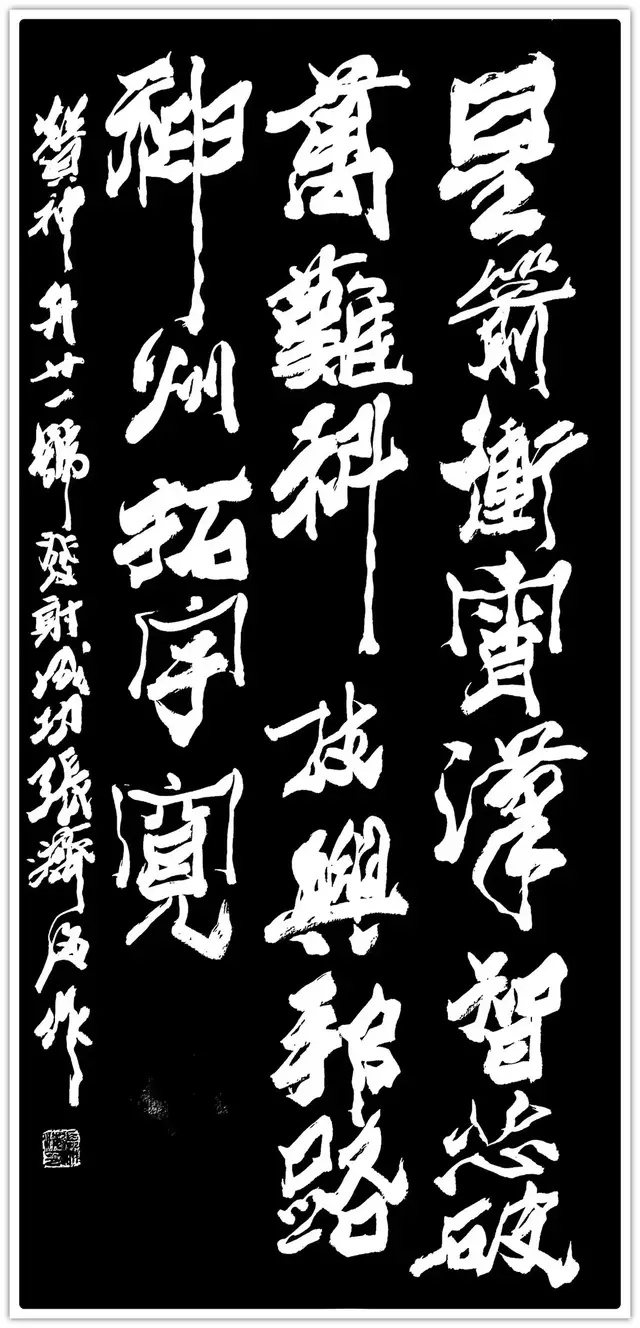 星箭衝霄漢智芯破
萬難科技興邦路
神州拓宇寬
贊神舟廿一號發射成功張濟海作